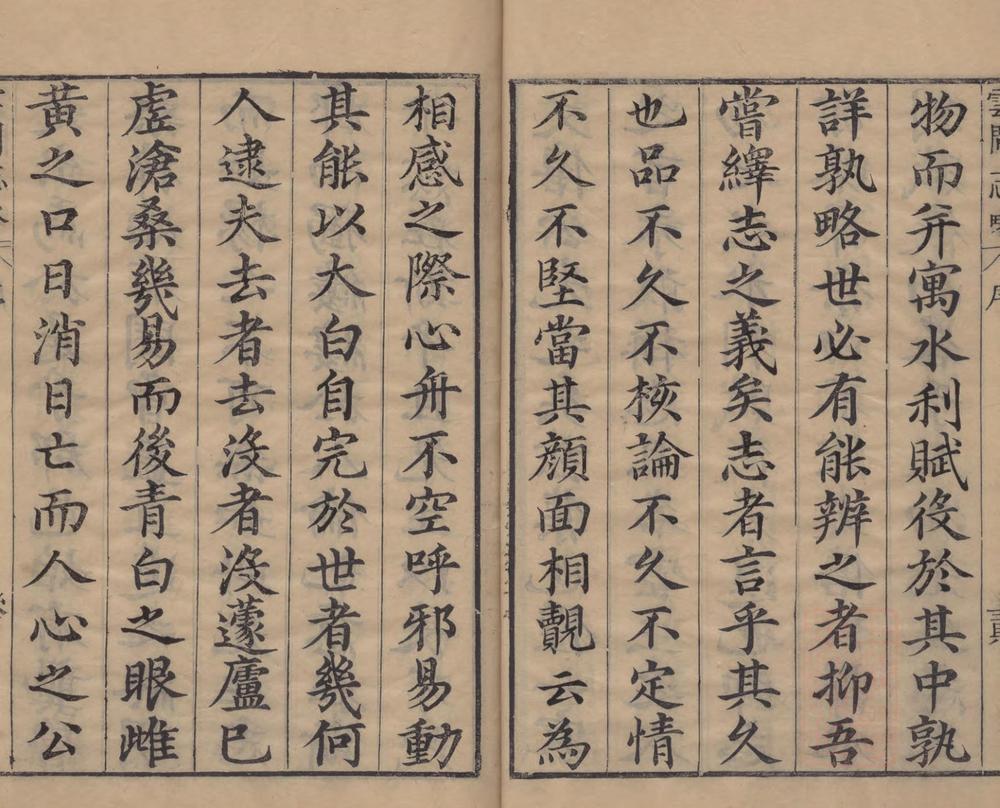 物而弁寓水利賦役於其中孰
詳孰略世必有能辨之者抑吾
嘗繹志之義矣志者言乎其久
也品不久不核論不久不定情
不久不堅當其顔面相覿云為
相感之際心舟不空呼邪易動
其能以大白自完於世者幾何
人逮夫去者去沒者沒蘧廬已
虛滄桑幾易而後青白之眼雌
黃之口日消日亡而人心之公